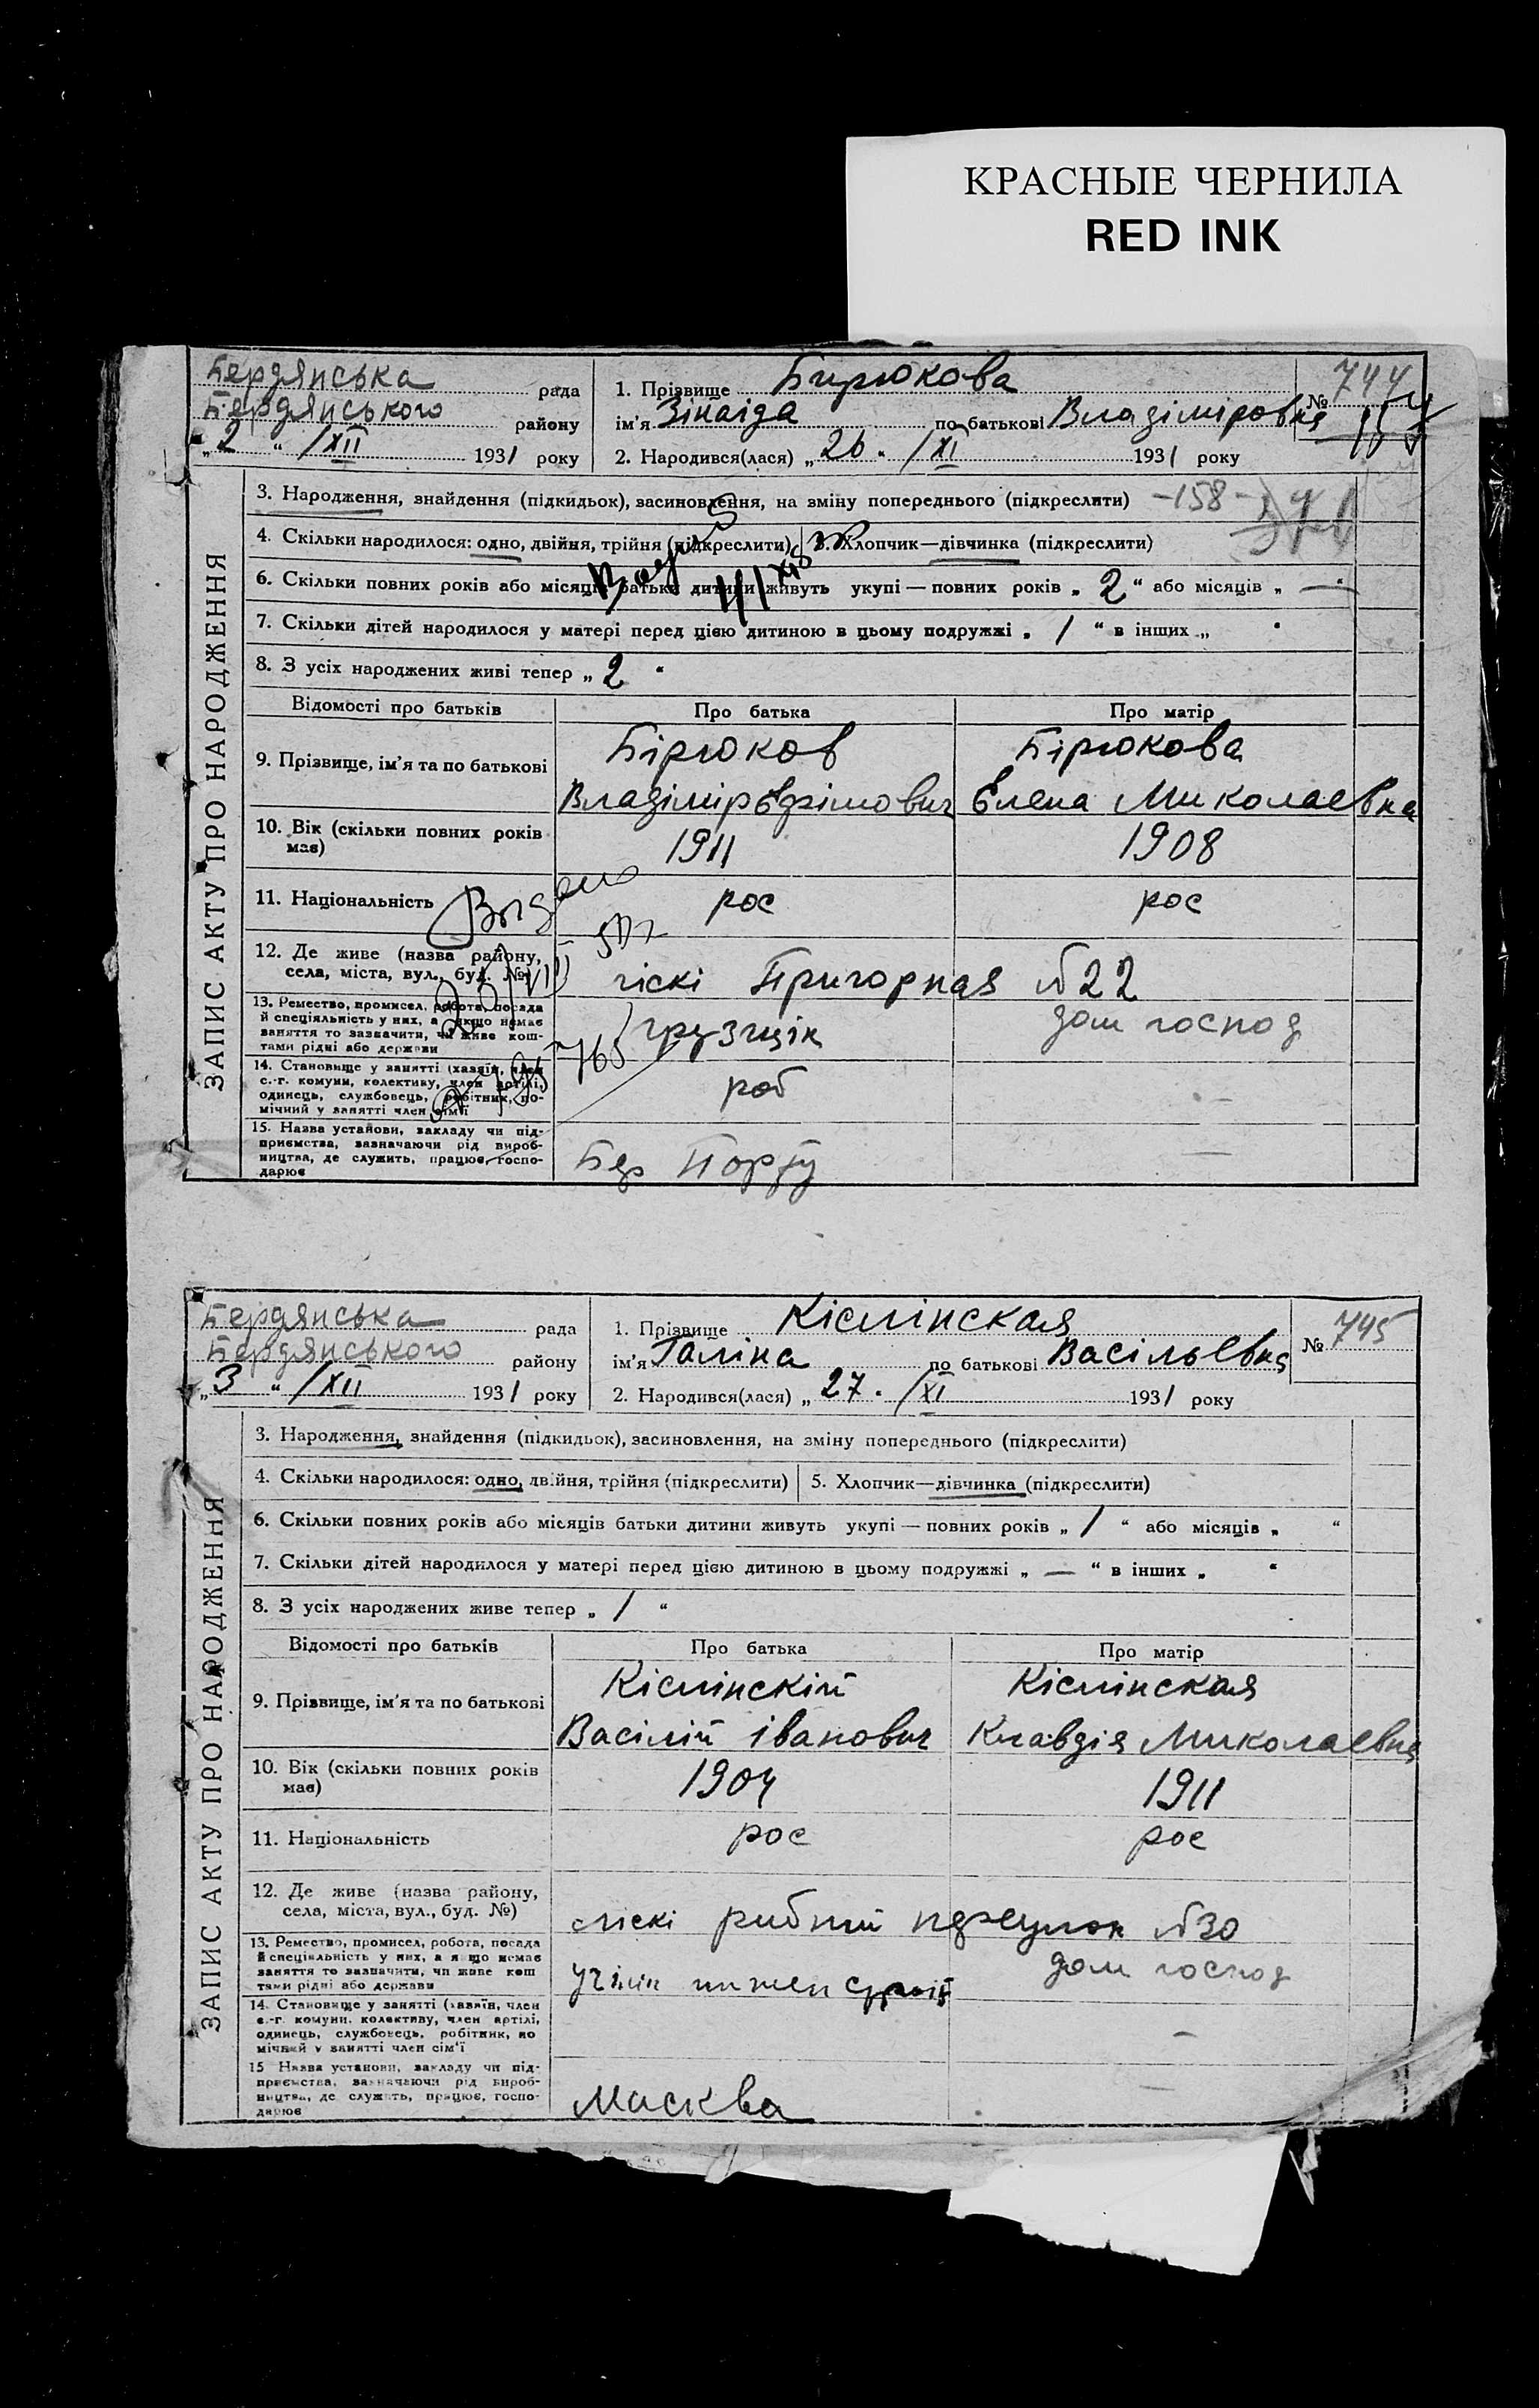 КРАСНЫЕ ЧЕРНИЛА
RED INK
ЗАПИС АКТУ ПРО НАРОДЖЕННЯ
Бердянська рада
Бердянського району
„2“ /XII 1931 року
1. Прізвище Бирюкова
ім'я Зінаіда по батькові Владіміровна
2. Народився(лася) „26“ /XI 1931 року
№ 744
3. Народження, знайдення (підкидьок), засиновлення, на зміну попереднього (підкреслити) -158-
4. Скільки народилося: одно, двійня, трійня (підкреслити)
5. Хлопчик—дівчинка (підкреслити)
6. Скільки повних років або місяців батьки дитини живуть укупі — повних років „2“ або місяців „—“
7. Скільки дітей народилося у матері перед цією дитиною в цьому подружжі „1“ в інших „ “
8. З усіх народжених живі тепер „2“
Відомості про батьків Про батька Про матір
9. Прізвище, ім'я та по батькові
Бірюков Бірюкова
Владімір Єфімович Єлена Миколаевна
10. Вік (скільки повних років має) 1911 1908
11. Національність рос рос
12. Де живе (назва району,
села, міста, вул., буд. №) Пригорная №22
13. Ремество, промисел, робота, посада
й спеціяльність у них, а якщо немає
заняття то зазначити, чи живе кош-
тами рідні або держави
грузщік дом господ
14. Становище у занятті (хазяїн, член
с.-г. комуни, колективу, член артілі,
одинець, службовець, робітник, по-
мічний у занятті член сім'ї
роб —
15. Назва установи, закладу чи під-
приємства, зазначаючи рід вироб-
ництва, де служить, працює, госпо-
дарює
Бер Порту —
ЗАПИС АКТУ ПРО НАРОДЖЕННЯ
Бердянська рада
Бердянського району
„3“ /XII 1931 року
1. Прізвище Кіслінская
ім'я Галіна по батькові Васільевна
2. Народився(лася) „27“ /XI 1931 року
№ 745
3. Народження, знайдення (підкидьок), засиновлення, на зміну попереднього (підкреслити)
4. Скільки народилося: одно, двійня, трійня (підкреслити)
5. Хлопчик—дівчинка (підкреслити)
6. Скільки повних років або місяців батьки дитини живуть укупі — повних років „1“ або місяців „ “
7. Скільки дітей народилося у матері перед цією дитиною в цьому подружжі „—“ в інших „ “
8. З усіх народжених живе тепер „1“
Відомості про батьків Про батька Про матір
9. Прізвище, ім'я та по батькові
Кіслінскій Кіслінская
Васілій Іванович Клавдія Миколаевна
10. Вік (скільки повних років має) 1904 1911
11. Національність рос рос
12. Де живе (назва району,
села, міста, вул., буд. №) №30
13. Ремество, промисел, робота, посада
й спеціяльність у них, а якщо немає
заняття то зазначити, чи живе кош
тами рідні або держави
дом господ
14. Становище у занятті (хазяїн, член
с.-г. комуни, колективу, член артілі,
одинець, службовець, робітник, по
мічний у занятті член сім'ї
—
15 Назва установи, закладу чи під-
приємства, зазначаючи рід вироб-
ництва, де служить, працює, госпо-
дарює
Масква —